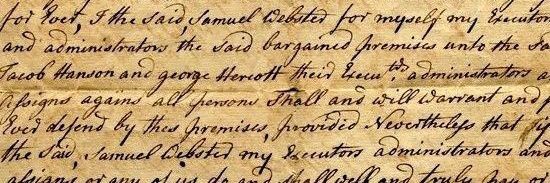 for Ever, I the said, Samuel Webster for myself my Executors
and administrators the said bargained premises unto the Sa
Jacob Hanson and george Hercott their Execu.trs administrators a
Assigns agains all persons Shall and will Warrant and
Ever defend by thes premises, provided Nevertheless that
the Said, Samuel Webster my Executors administrators and
assigns or any of us do and shall well and truly pay or